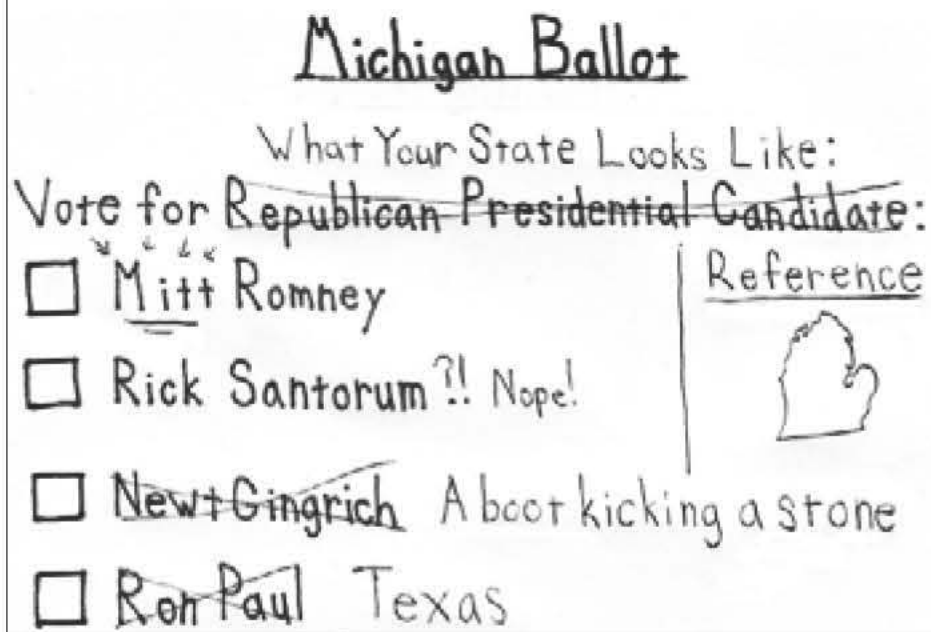 Michigan Ballot
What Your State Looks Like:
Vote for Republican Presidential Candidate:
Mitt Romney
Reference
Rick Santorum?! Nope!
Newt Gingrich A boot kicking a stone
Ron Paul Texas